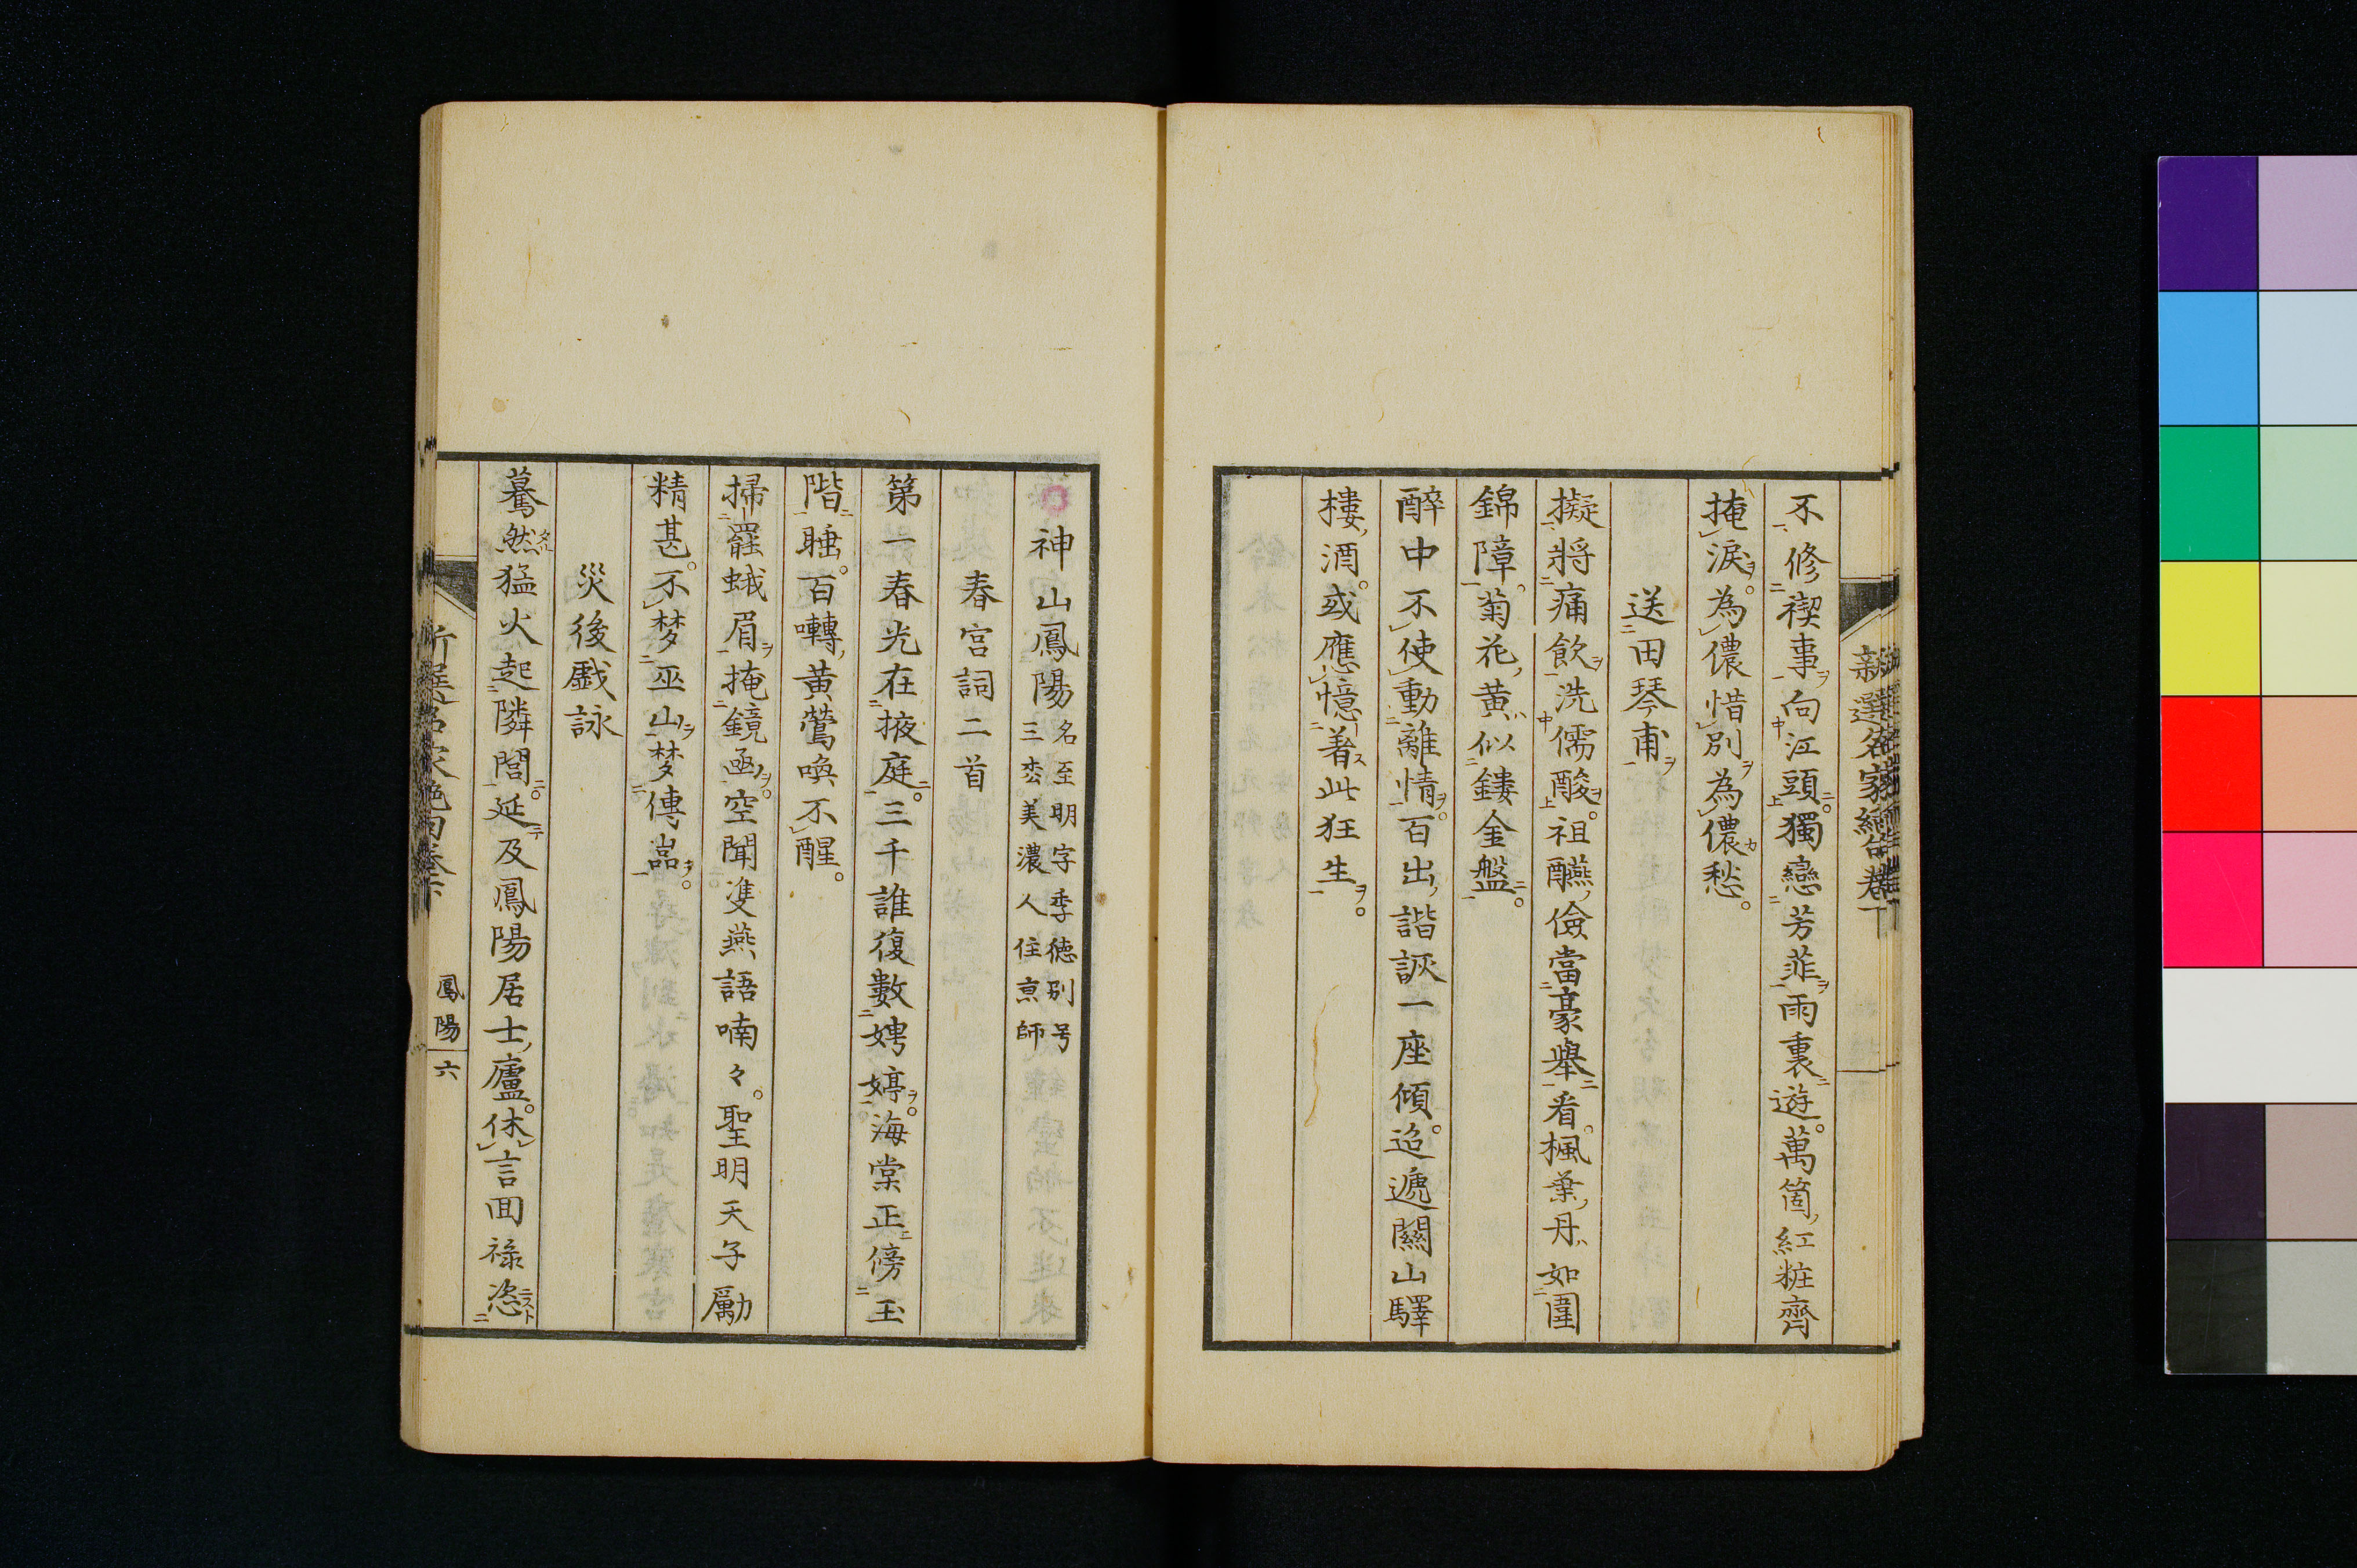 不修禊事向江頭獨戀芳菲雨裏遊萬箇紅粧齊
掩淚為儂惜別為儂愁
送田琴甫
擬將痛飲洗儒酸祖醼儉當豪舉看楓葉丹如圍
錦障菊花黃似鏤金盤
醉中不使動離情百出諧詼一座傾迨遞關山驛
樓酒或應憶著此狂生
神山鳳陽
名至明字季徳別号
三松美濃人住京師
春宮詞二首
第一春光在掖庭三千誰復數娉婷海棠正傍玉
階睡百囀黃鶯喚不醒
掃罷蛾眉掩鏡函空聞雙燕語喃々聖明天子勵
精甚不梦巫山梦傳嵓
災後戲詠
驀然猛火起隣閭延及鳳陽居士廬休言回祿恣
新選名家絶句巻下
鳳陽
六